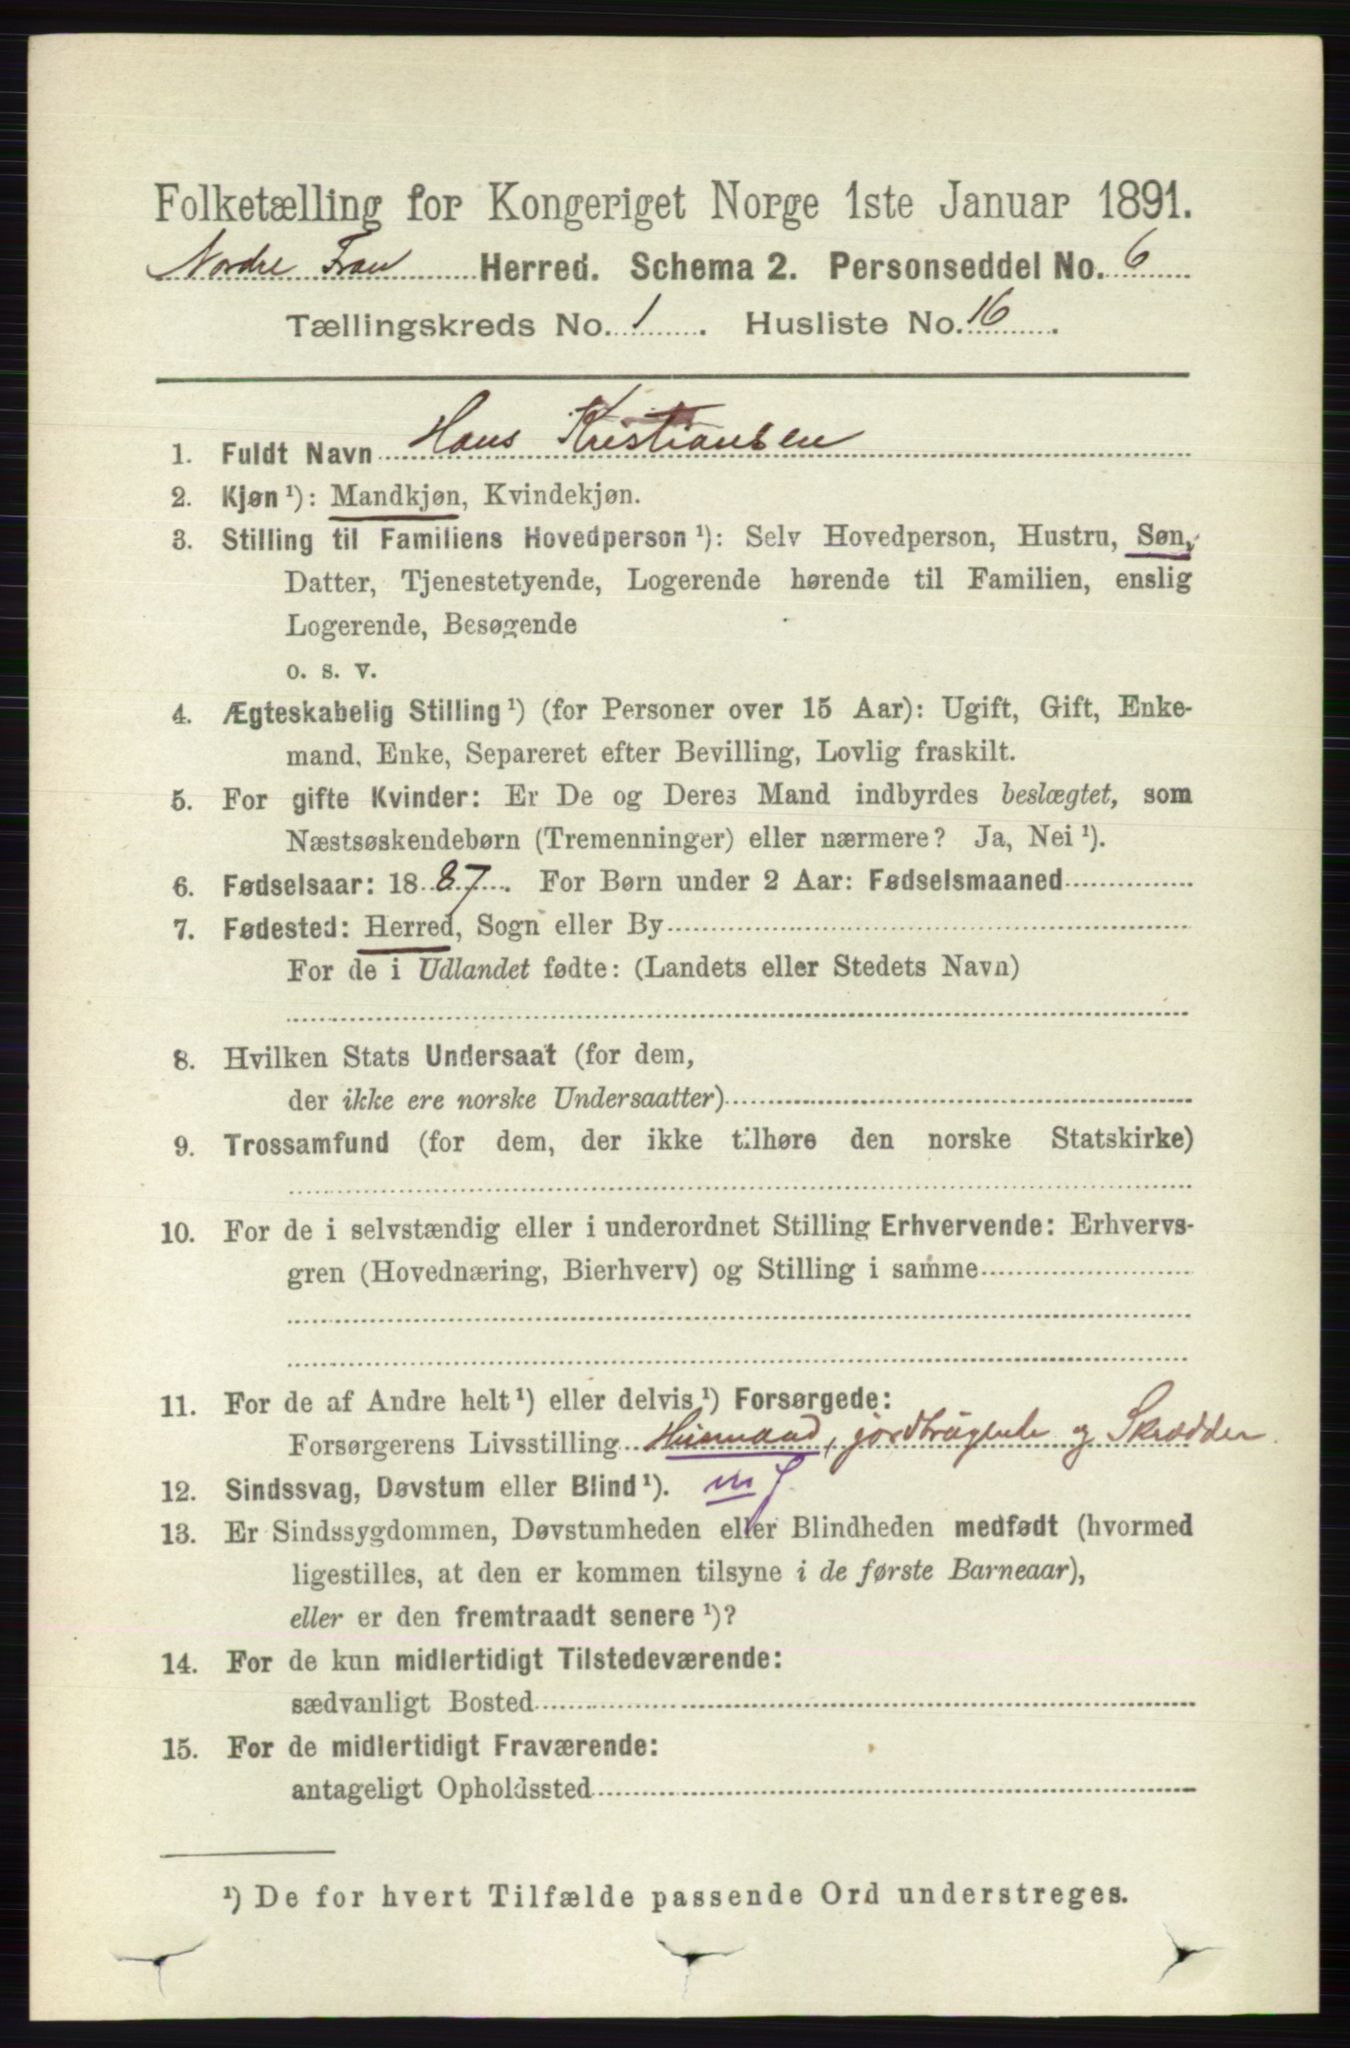 Folketælling for Kongeriget Norge 1ste Januar 1891.
Nordre Fron Herred. Schema 2. Personseddel No. 6
Tællingskreds No. 1. Husliste No. 16.
1. Fuldt Navn Hans Kristiansen
2. Kjøn ¹): Mandkjøn, Kvindekjøn.
3. Stilling til Familiens Hovedperson ¹): Selv Hovedperson, Hustru, Søn,
Datter, Tjenestetyende, Logerende hørende til Familien, enslig
Logerende, Besøgende
o. s. v.
4. Ægteskabelig Stilling ¹) (for Personer over 15 Aar): Ugift, Gift, Enke-
mand, Enke, Separeret efter Bevilling, Lovlig fraskilt.
5. For gifte Kvinder: Er De og Deres Mand indbyrdes beslægtet, som
Næstsøskendebørn (Tremenninger) eller nærmere? Ja, Nei ¹).
6. Fødselsaar: 1887. For Børn under 2 Aar: Fødselsmaaned
7. Fødested: Herred, Sogn eller By
For de i Udlandet fødte: (Landets eller Stedets Navn)
8. Hvilken Stats Undersaat (for dem,
der ikke ere norske Undersaatter)
9. Trossamfund (for dem, der ikke tilhøre den norske Statskirke)
10. For de i selvstændig eller i underordnet Stilling Erhvervende: Erhvervs-
gren (Hovednæring, Bierhverv) og Stilling i samme
11. For de af Andre helt ¹) eller delvis ¹) Forsørgede:
Forsørgerens Livsstilling Husmand, jordbrugende og Skrædder.
12. Sindssvag, Døvstum eller Blind ¹). m J
13. Er Sindssygdommen, Døvstumheden eller Blindheden medfødt (hvormed
ligestilles, at den er kommen tilsyne i de første Barneaar),
eller er den fremtraadt senere ¹)?
14. For de kun midlertidigt Tilstedeværende:
sædvanligt Bosted
15. For de midlertidigt Fraværende:
antageligt Opholdssted
¹) De for hvert Tilfælde passende Ord understreges.